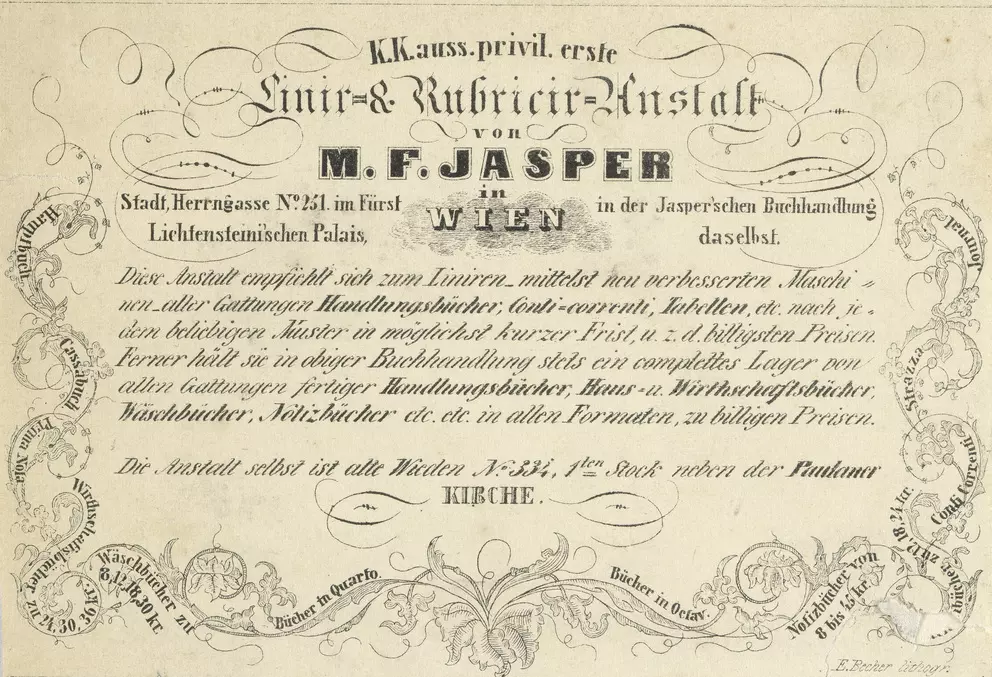 K.K. auss. privil. erste
Linir-& Rubricir-Anstalt
von
M. F. JASPER
in
WIEN
Stadt, Herrngasse No. 251. im Fürst
Lichtensteinischen Palais,
in der Jasper'schen Buchhandlung
daselbst.
Diese Anstalt empfiehlt sich zum Liniren_mittelst neu verbesserten Maschi=
nen_aller Gattungen Handlungsbücher, Conti-correnti, Tabellen, etc. nach je=
dem beliebigen Muster in möglichst kurzer Frist, u. z. d. billigsten Preisen.
Ferner hält sie in obiger Buchhandlung stets ein complettes Lager von
allen Gattungen fertiger Handlungsbücher, Haus- u. Wirthschaftsbücher,
Wäschbücher, Notizbücher etc. etc. in allen Formaten, zu billigen Preisen.
Die Anstalt selbst ist alte Wieden No. 334, 1ten Stock neben der Paulaner
KIRCHE.
Hauptbuch
Cassabuch
Prima Nota
Wirthschaftsbücher zu
24, 30, 36 kr.
Wäschbücher zu
8, 12, 18, 30 kr
Bücher in Quarto.
Bücher in Octav.
Notizbücher von
8 bis 45 kr.
bücher zu 12, 18, 24 kr.
Conti Correnti
Strazza
Journal
E. Becher lithogr.